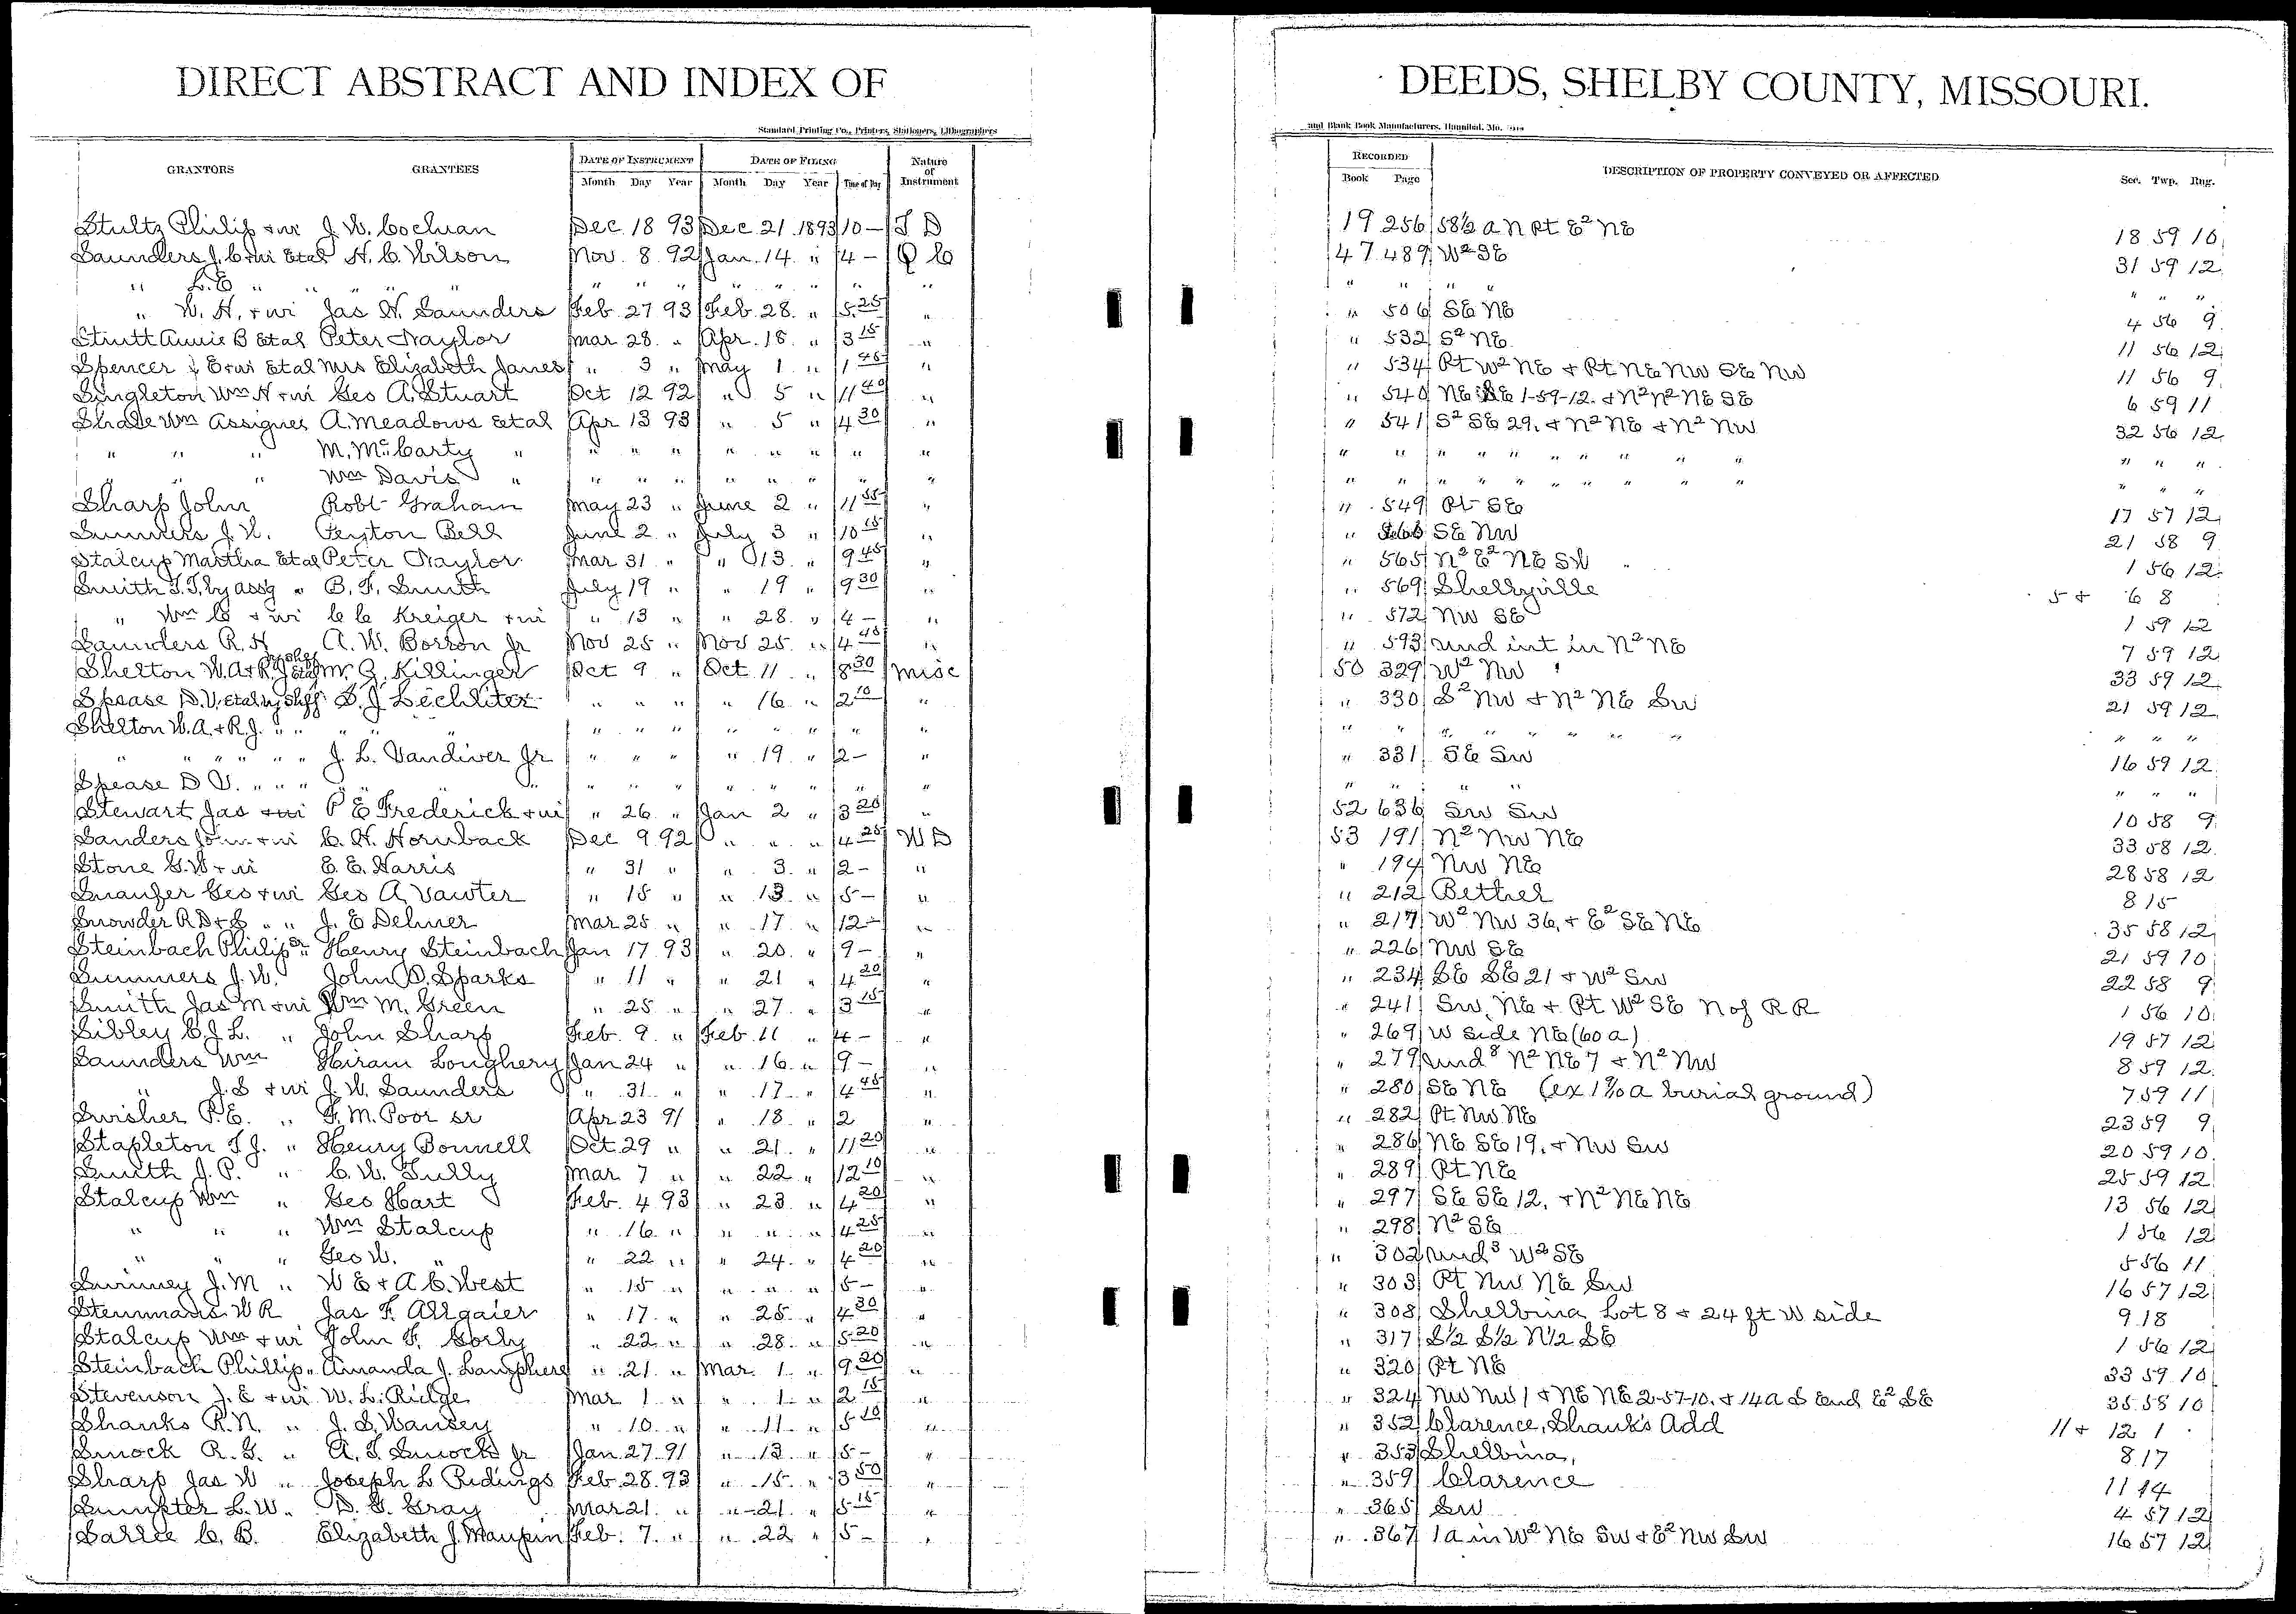 DIRECT ABSTRACT AND INDEX OF
DEEDS, SHELBY COUNTY, MISSOURI.
Standard Printing Co., Printers, Stationers, Lithographers
and Blank Book Manufacturers, Hannibal, Mo.
GRANTORS GRANTEES DATE OF INSTRUMENT Month Day Year DATE OF FILING Month Day Year Time of Day Nature of Instrument RECORDED Book Page DESCRIPTION OF PROPERTY CONVEYED OR AFFECTED Sec. Twp. Rng.
Stultz Philip + wi J. W. Cochran Dec 18 93 Dec 21 1893 10 — T D 19 256 58½ a N Pt E² NE 18 59 10
Saunders J. C + wi Etal H. C. Wilson Nov. 8 92 Jan. 14 " 4 — Q C 47 489 W² SE 31 59 12
" L. E " " " " " " " " " " " " " " " " " " "
" W. H. + wi Jas H. Saunders Feb 27 93 Feb 28 " 5 25 " " 506 SE NE 4 56 9
Strutt Annie B Etal Peter Naylor Mar 28 " Apr. 18 " 3 15 " " 532 S² NE 11 56 12
Spencer J E + wi Etal Mrs Elizabeth Janes " 3 " May 1 " 1 45 " " 534 Pt W² NE + Pt NE NW SE NW 11 56 9
Singleton Wm H + wi Geo A. Stuart Oct 12 92 " 5 " 11 40 " " 540 NE SE 1-59-12. + N² N² NE SE 6 59 11
Shale Wm Assignes A. Meadows Etal Apr 13 93 " 5 " 4 30 " " 541 S² SE 29. + N² NE + N² NW 32 56 12
" " " M. McCarty " " " " " " " " " " " " " " " " " " " " " "
" " " Wm Davis " " " " " " " " " " " " " " " " " " " " " "
Sharp John Robt Graham May 23 " June 2 " 11 55 " " 549 Pt SE 17 57 12
Summers J. W. Peyton Bell June 2 " July 3 " 10 15 " " SE NW 21 58 9
Stalcup Martha Etal Peter Naylor Mar 31 " " 13 " 9 45 " " 565 N² E² NE SW 1 56 12
Smith T. T. by assg " B. F. Smith July 19 " " 19 " 9 30 " " 569 Shelbyville 5 + 6 8
" Wm C + wi C C Kreiger + wi " 13 " " 28 " 4 — " " 572 NW SE 1 59 12
Saunders R. H A. W. Borron Jr Nov 25 " Nov 25 " 4 45 " " 593 und int in N² NE 7 59 12
Shelton W. A + R. J Etal by Shff Mr. G. Killinger Oct 9 " Oct 11 " 8 30 Misc 50 329 W² NW 33 59 12
Spease D. V. Etal by Shff S. J. Lechliter " " " " 16 " 2 10 " " 330 S² NW + N² NE SW 21 59 12
Shelton W. A. + R. J. " " " " " " " " " " " " " " " " " " " " " "
" " " " " J. L. Vandiver Jr " " " " 19 " 2 — " " 331 SE SW 16 59 12
Spease D V. " " " " " " " " " " " " " " " " " " "
Stewart Jas + wi P E Frederick + wi " 26 " Jan 2 " 3 20 " 52 636 SW SW 10 58 9
Sanders John + wi C. H. Hornback Dec 9 92 " " " 4 25 W D 53 191 N² NW NE 33 58 12
Stone G. W + wi E. E. Harris " 31 " " 3 " 2 — " " 194 NW NE 28 58 12
Snaufer Geo + wi Geo A. Vawter " 15 " " 13 " 5 — " " 212 Bethel 8 15
Snowder R D + S " " J. E Delmer Mar 25 " " 17 " 12 — " " 217 W² NW 36, + E² SE NE 35 58 12
Steinbach Philip Sr " Henry Steinbach Jan 17 93 " 20 " 9 — " " 226 NW SE 21 59 10
Summers J. W. John D. Sparks " 11 " " 21 " 4 20 " " 234 SE SE 21 + W² SW 22 58 9
Smith Jas M + wi Wm M. Green " 25 " " 27 " 3 15 " " 241 SW, NE + Pt W² SE N of R R 1 56 10
Sibley C. J. L. " John Sharp Feb. 9 " Feb 11 " 4 — " " 269 W side NE (60 a) 19 57 12
Saunders Wm Hiram Loughery Jan 24 " " 16 " 9 — " " 279 und ⁸ N² NE 7 + N² NW 8 59 12
" J. S + wi J. W. Saunders " 31 " " 17 " 4 45 " " 280 SE NE (ex 1 7/10 a burial ground) 7 59 11
Swisher P. E. " F. M. Poor sr Apr 23 91 " 18 " 2 " " 282 Pt NW NE 23 59 9
Stapleton T J. " Henry Bonnell Oct 29 " " 21 " 11 20 " " 286 NE SE 19, + NW SW 20 59 10
Smith J. P. " C. W. Tully Mar 7 " " 22 " 12 10 " " 289 Pt NE 25 59 12
Stalcup Wm " Geo Hart Feb. 4 93 " 23 " 4 20 " " 297 SE SE 12, + N² NE NE 13 56 12
" " " Wm Stalcup " 16 " " " " 4 25 " " 298 N² SE 1 56 12
" " " Geo W. " " 22 " " 24 " 4 20 " " 302 und ³ W² SE 5 56 11
Swinney J. M " W E + A C. West " 15 " " " " 5 — " " 303 Pt NW NE SW 16 57 12
Stemmans W R Jas F. Allgaier " 17 " " 25 " 4 30 " " 308 Shelbina Lot 8 + 24 ft W side 9 18
Stalcup Wm + wi John F. Gorly " 22 " " 28 " 5 20 " " 317 S½ S½ N½ SE 1 56 12
Steinbach Phillip " Amanda J. Lanphere " 21 " Mar. 1 " 9 20 " " 320 Pt NE 33 59 10
Stevenson J. E + wi W. L. Ridge Mar 1 " " 1 " 2 15 " " 324 NW NW 1 + NE NE 2-57-10. + 14 a S End E² SE 35 58 10
Shanks R. N. " J. S. Wansey " 10 " " 11 " 5 10 " " 352 Clarence, Shanks Add 11 + 12 1
Smock R. G. " A. T. Smock Jr Jan 27 91 " 13 " 5 — " " 353 Shelbina, 8 17
Sharp Jas W " Joseph L Ridings Feb 28 93 " 15 " 3 50 " " 359 Clarence 11 14
Sumpter L. W. " D. G. Gray Mar 21 " " 21 " 5 15 " " 365 SW 4 57 12
Sarlee C. B. Elizabeth J. Maupin Feb. 7 " " 22 " 5 — " " 367 1 a in W² NE SW + E² NW SW 16 57 12